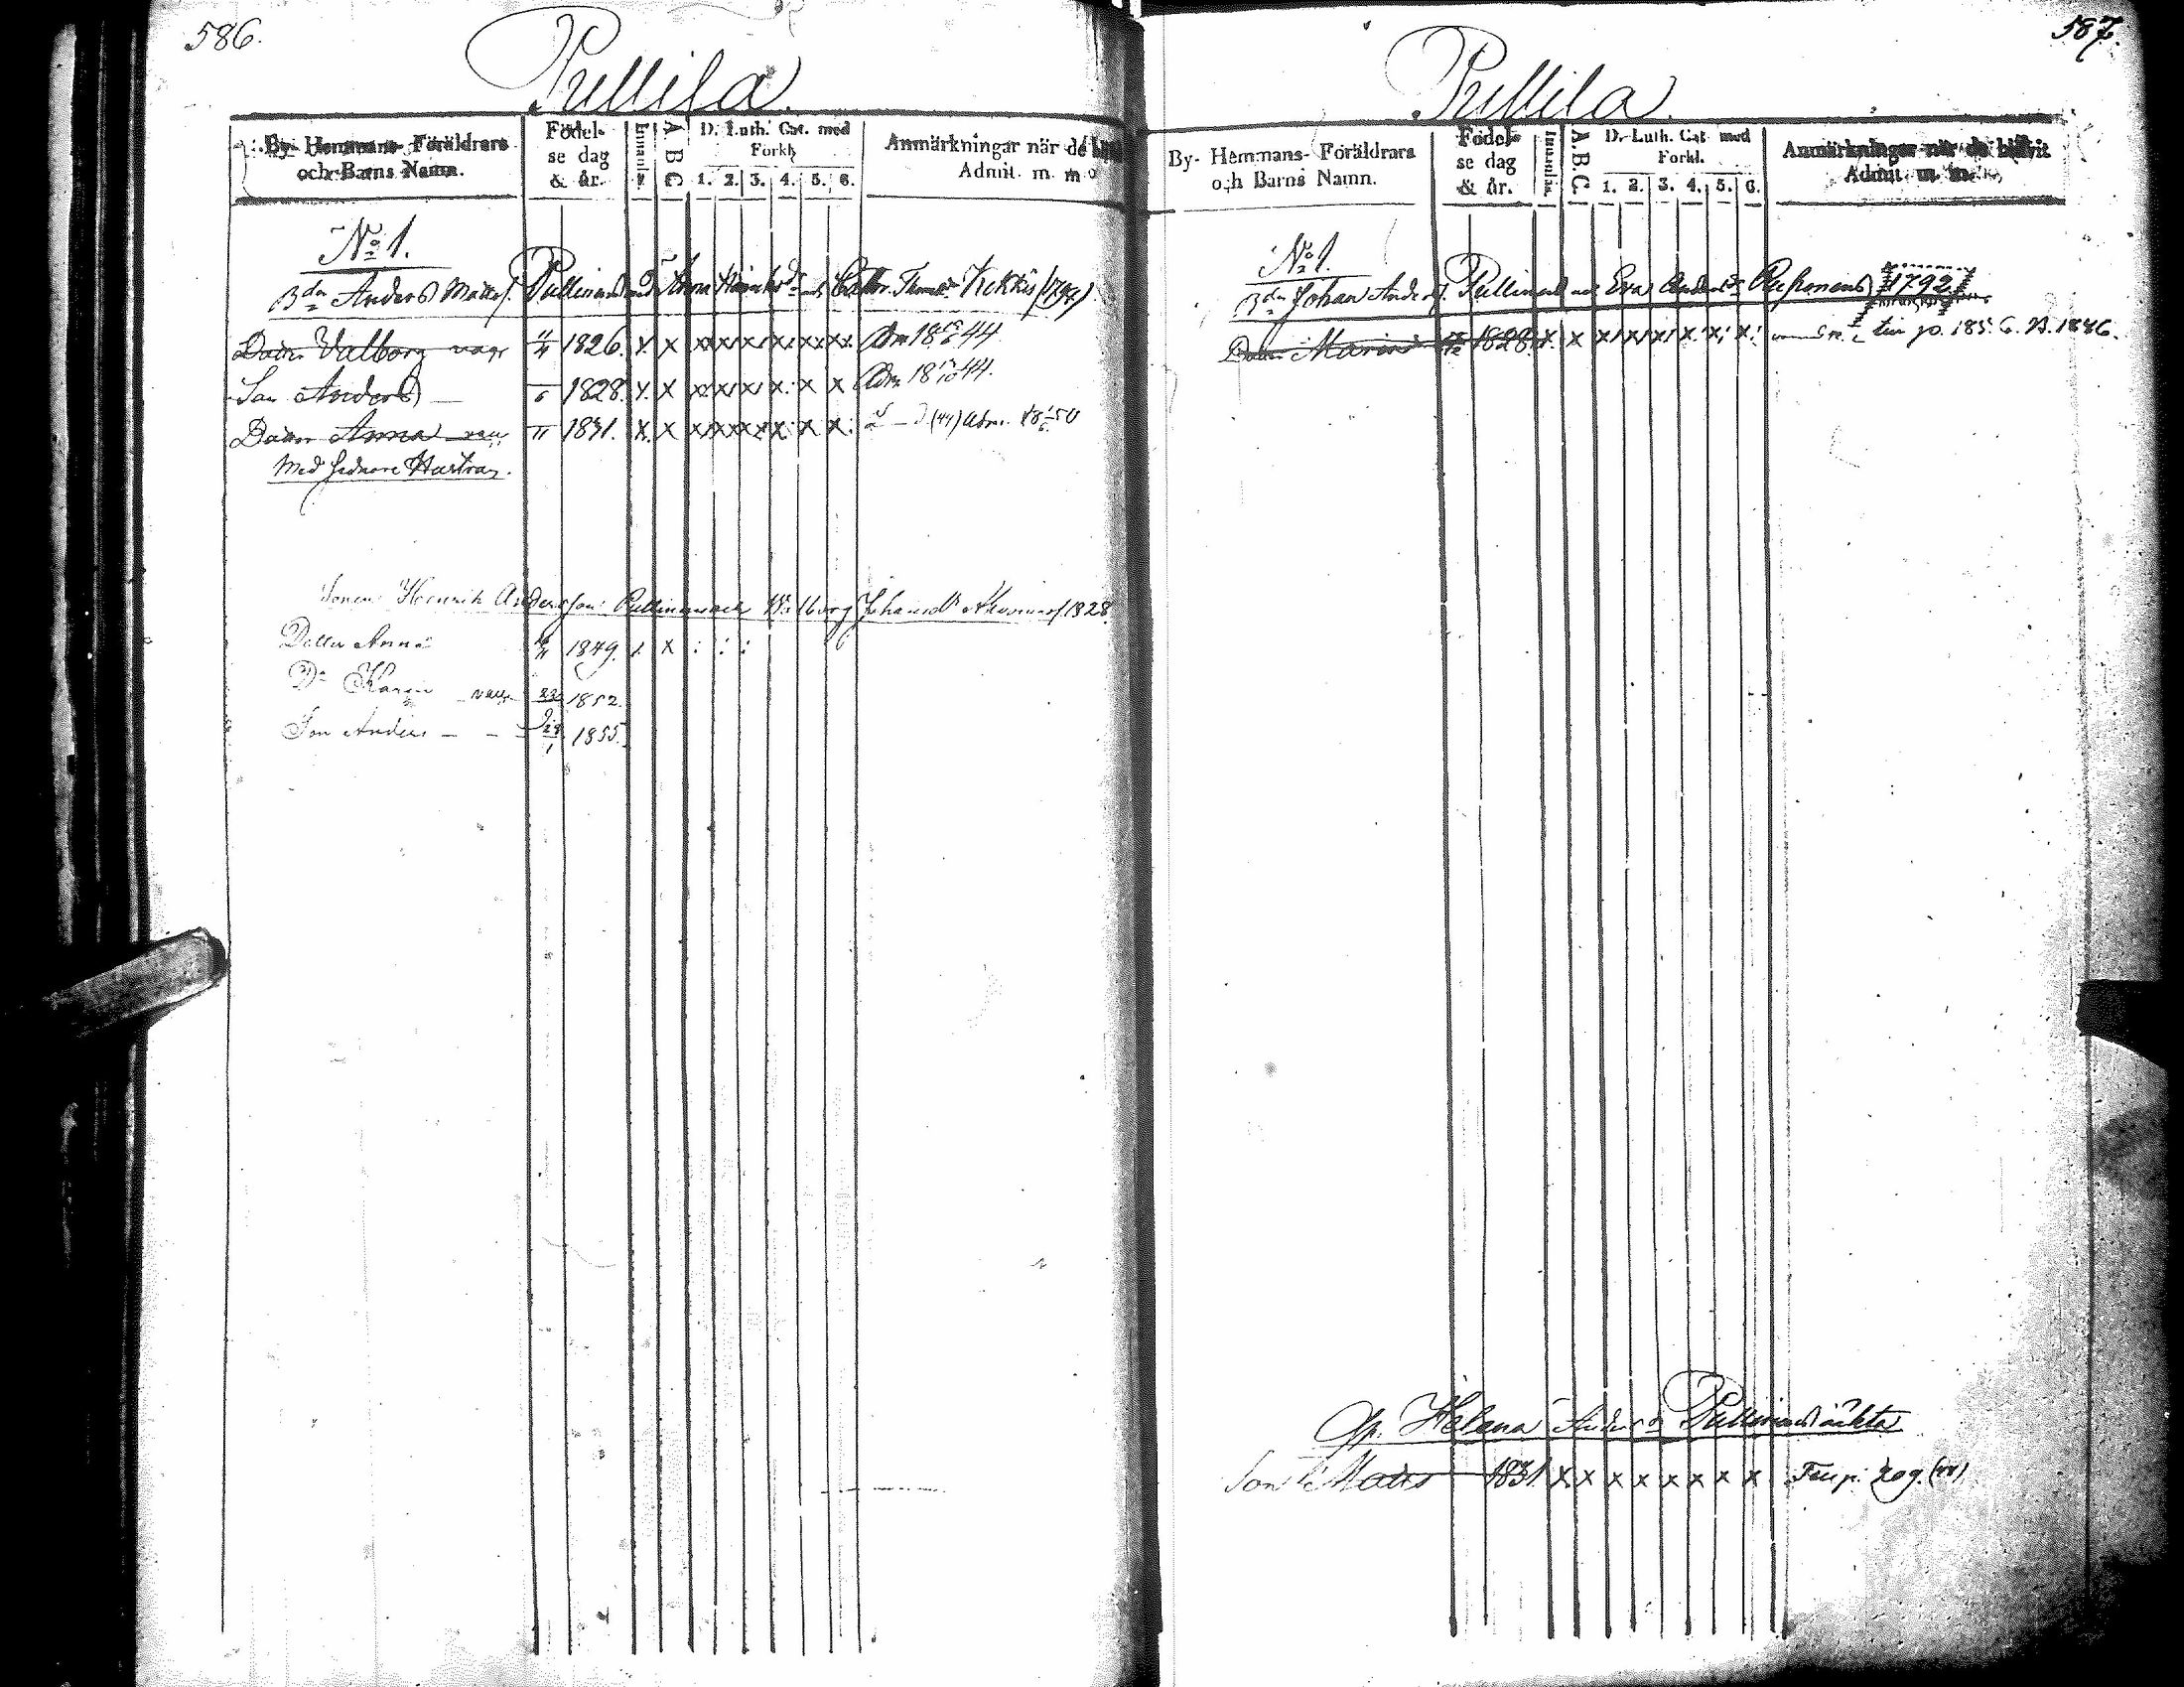 586.
Pullila.
By- Hemmans- Föräldrars och Barns Namn.
Födel- se dag & år.
Innanläs.
A B C
D. Luth. Cat. med Förkl.
1. 2. 3. 4. 5. 6.
Anmärkningar när de
Admit. m. m
No 1.
Bdn Anders Matts. Pullinen Anna Hinriksdr Thomædr Kekkis (1794)
Dotter Valborg vacc 4/4 1826. x x x x x x x x Adm 18 44
Son Anders — 6 1828. x x x x x x x x Adm 18 44.
Dotter Anna vacc 11 1831. x x x x x x x x (44) Adm. 18 50
Med sednare Hustrun.
Sonen Henrik Andersson Pullinen och Walborg Johansdr 1828
Dotter Anna 1849. x
Dr Karin vacc 22 1852.
Son Anders — — 1855.
587.
Pullila
By- Hemmans- Föräldrars och Barns Namn.
Födel- se dag & år.
Innanläs.
A.B.C.
D. Luth. Cat. med Förkl.
1. 2. 3. 4. 5. 6.
Anmärkningar när de blifvit
Admit. m. m.
No 1.
Bdn Johan Anders. Pullinen Eva Andersdr 1792
Dotter Maria 1828. x x x x x x x x 1846.
Helena Andersdr Pullinens oäkta
Son Mats 1831 x x x x x x x x 209. (44)